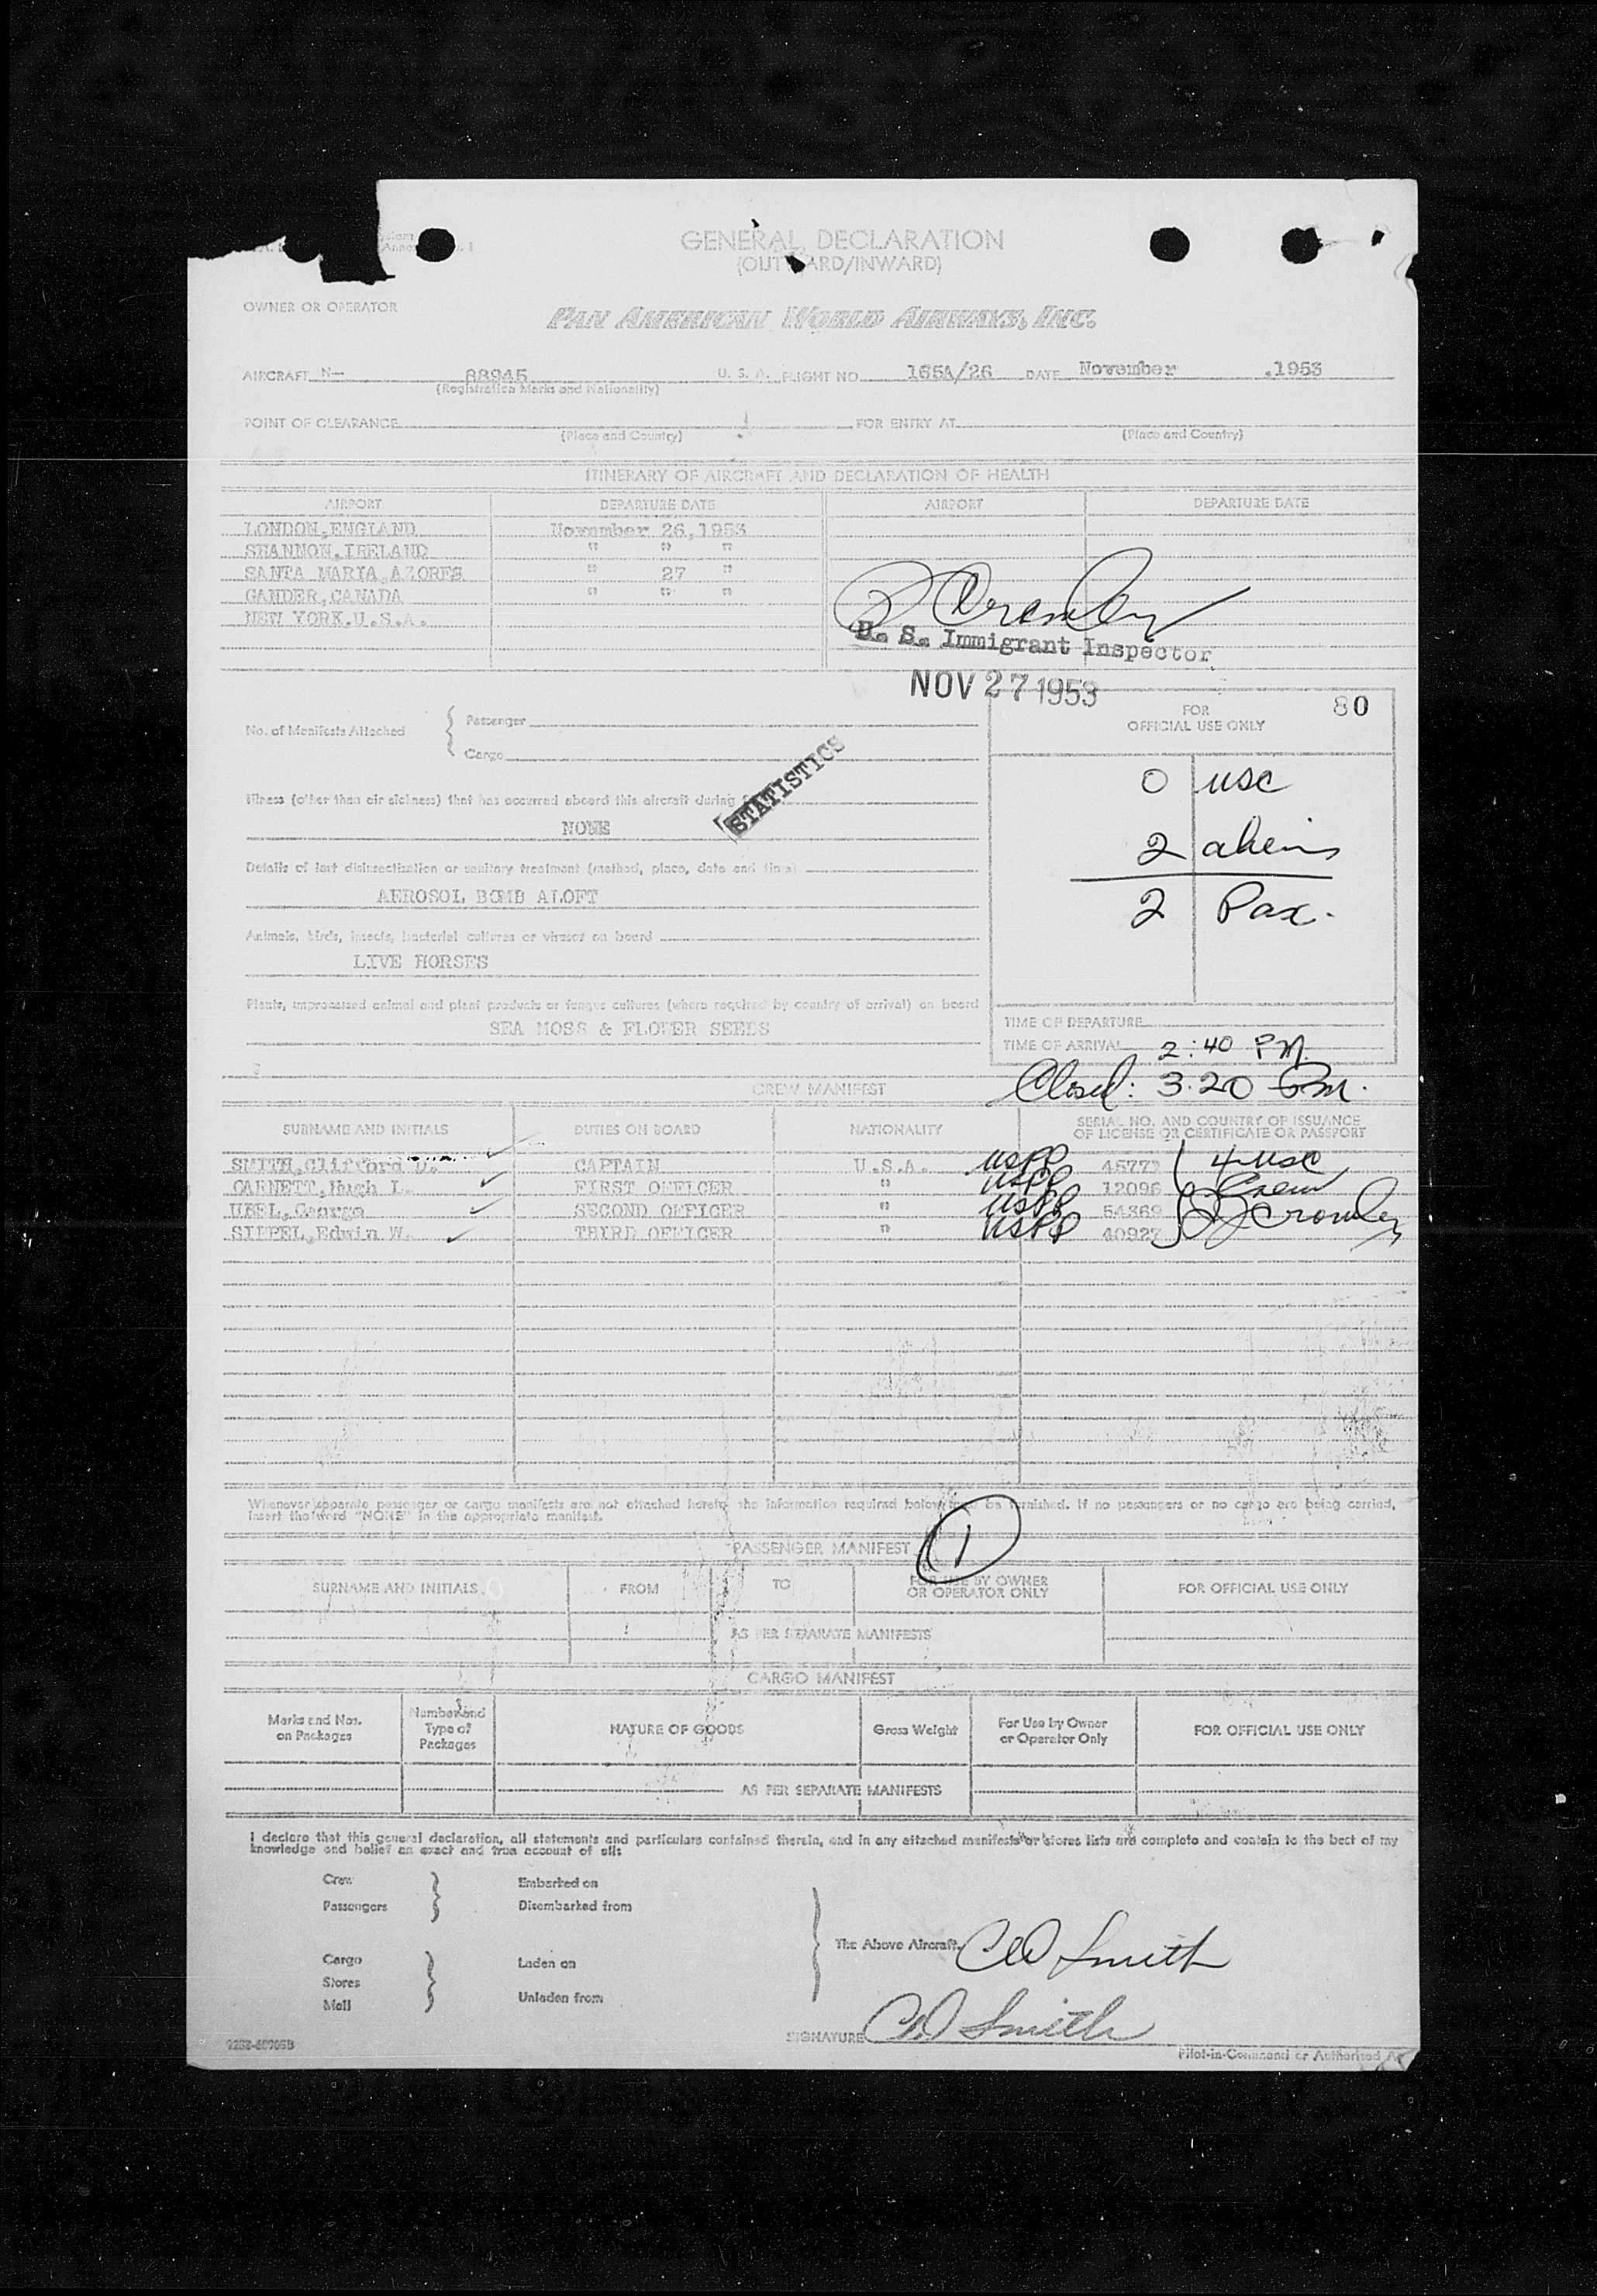 GENERAL DECLARATION
(OUTWARD/INWARD)
OWNER OR OPERATOR
PAN AMERICAN WORLD AIRWAYS, INC.
AIRCRAFT N— 88945 U. S. A. FLIGHT NO. 165A/26 DATE November .1953
(Registration Marks and Nationality)
POINT OF CLEARANCE FOR ENTRY AT
(Place and Country) (Place and Country)
ITINERARY OF AIRCRAFT AND DECLARATION OF HEALTH
AIRPORT DEPARTURE DATE AIRPORT DEPARTURE DATE
LONDON,ENGLAND November 26,1953
SHANNON,IRELAND " " "
SANTA MARIA,AZORES " 27 "
GANDER,CANADA " " "
NEW YORK.U.S.A.
Crowley
U. S. Immigrant Inspector
NOV 27 1953
No. of Manifests Attached { Passenger
Cargo
FOR OFFICIAL USE ONLY 80
STATISTICS
0 USC
2 aliens
2 Pax.
Illness (other than air sickness) that has occurred aboard this aircraft during
NONE
Details of last disinsectization or sanitary treatment (method, place, date and time)
AEROSOL BOMB ALOFT
Animals, birds, insects, bacterial cultures or viruses on board
LIVE HORSES
Plants, unprocessed animal and plant products or fungus cultures (where required by country of arrival) on board
SEA MOSS & FLOWER SEEDS
TIME OF DEPARTURE
TIME OF ARRIVAL 2:40 PM
Closed: 3.20 Pm.
CREW MANIFEST
SURNAME AND INITIALS DUTIES ON BOARD NATIONALITY SERIAL NO. AND COUNTRY OF ISSUANCE OF LICENSE OR CERTIFICATE OR PASSPORT
SMITH,Clifford D. CAPTAIN U.S.A. USPP 4577 4 USC
GARNETT,Hugh L. FIRST OFFICER " USPP 12096 Crew
UBEL,George SECOND OFFICER " USPP 54369 Crowley
SIPPEL,Edwin W. THIRD OFFICER " USPP 40927
Whenever separate passenger or cargo manifests are not attached hereto, the information required below must be furnished. If no passengers or no cargo are being carried,
insert the word "NONE" in the appropriate manifest.
1
PASSENGER MANIFEST
SURNAME AND INITIALS FROM TO FOR USE BY OWNER OR OPERATOR ONLY FOR OFFICIAL USE ONLY
AS PER SEPARATE MANIFESTS
CARGO MANIFEST
Marks and Nos. on Packages Number and Type of Packages NATURE OF GOODS Gross Weight For Use by Owner or Operator Only FOR OFFICIAL USE ONLY
AS PER SEPARATE MANIFESTS
I declare that this general declaration, all statements and particulars contained therein, and in any attached manifests or stores lists are complete and contain to the best of my
knowledge and belief an exact and true account of all:
Crew Embarked on
Passengers Disembarked from
The Above Aircraft. CD Smith
Cargo Laden on
Stores
Mail Unladen from
SIGNATURE CD Smith
Pilot-in-Command or Authorized